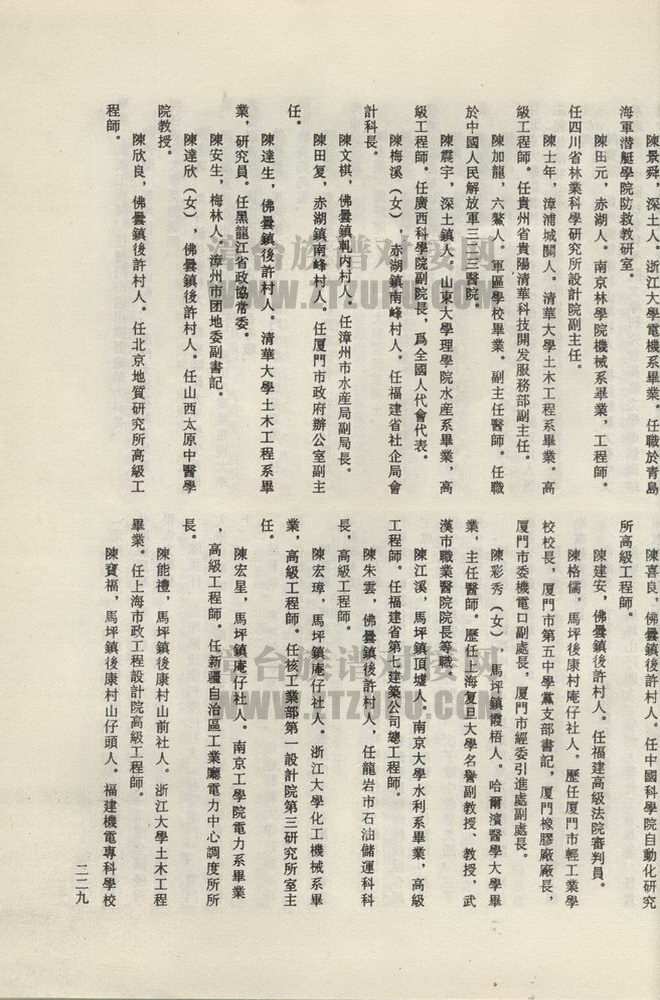 陳景舜，深土人。浙江大學電機系畢業。任職於青島
海軍潛艇學院防救教研室。
陳田元，赤湖人。南京林學院機械系畢業，工程師。
任四川省林業科學研究所設計院副主任。
陳士年，漳浦城關人。清華大學土木工程系畢業。高
級工程師。任貴州省貴陽清華科技開发服務部副主任。
陳加龍，六鰲人。軍區學校畢業。副主任醫師。任職
於中國人民解放軍三三三醫院。
陳震宇，深土鎮人。山東大學理學院水産系畢業，高
級工程師。任廣西科學院副院長，爲全國人代會代表。
陳梅溪（女），赤湖鎮南峰村人。任福建省社企局會
計科長。
陳文棋，佛曇鎮軋内村人。任漳州市水産局副局長。
陳田复，赤湖鎮南峰村人。任厦門市政府辦公室副主
任。
陳達生，佛曇鎮後許村人。清華大學土木工程系畢
業，研究員。任黑龍江省政協常委。
陳安生，梅林人。漳州市团地委副書記。
陳達欣（女），佛曇鎮後許村人。任山西太原中醫學
院教授。
陳欣良，佛曇鎮後許村人。任北京地質研究所高級工
程師。
陳喜良，佛曇鎮後許村人。任中國科學院自動化研究
所高級工程師。
陳建安，佛曇鎮後許村人。任福建高級法院審判員。
陳格儒，馬坪後康村庵仔社人。歷任厦門市輕工業學
校校長，厦門市第五中學黨支部書記，厦門橡膠廠廠長，
厦門市委機電口副處長，厦門市經委引進處副處長。
陳彩秀（女），馬坪鎮霞梧人。哈爾濱醫學大學畢
業，主任醫師。歷任上海复旦大學名譽副教授、教授，武
漢市職業醫院院長等職。
陳江溪，馬坪鎮頂墟人。南京大學水利系畢業，高級
工程師。任福建省第七建築公司總工程師。
陳朱雲，佛曇鎮後許村人，任龍岩市石油儲運科科
長，高級工程師。
陳宏璋，馬坪鎮庵仔社人。浙江大學化工機械系畢
業，高級工程師。任核工業部第一設計院第三研究所室主
任。
陳宏星，馬坪鎮庵仔社人。南京工學院電力系畢業
，高級工程師。任新疆自治區工業廳電力中心調度所所
長。
陳能禮，馬坪鎮後康村山前社人。浙江大學土木工程
畢業。任上海市政工程設計院高級工程師。
陳寶福，馬坪鎮後康村山仔頭人。福建機電專科學校
二二九
漳台族谱对接网
WWW.ZTZUPU.COM
漳台族谱对接网
WWW.ZTZUPU.COM